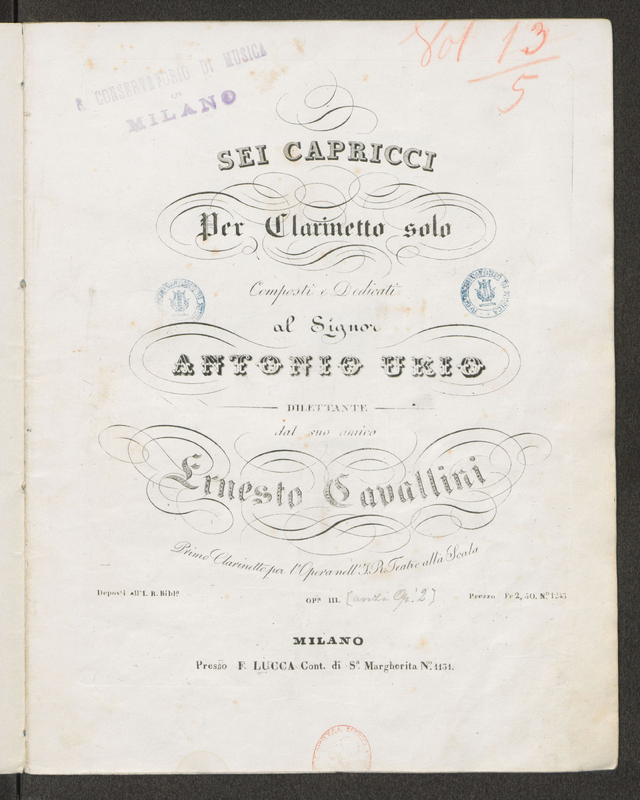 Vol 13
5
R. CONSERVATORIO DI MUSICA
DI
MILANO
SEI CAPRICCI
Per Clarinetto solo
Composti e Dedicati
al Signor
ANTONIO URIO
DILETTANTE
dal suo amico
Ernesto Cavallini
Primo Clarinetto per l'Opera nell'I. R. Teatro alla Scala
Deposti all'I. R. Bibl.ª
OP.ª III. (anzi Op. 2)
Prezzo Fr 2, 50. N.º 1243
MILANO
Presso F. LUCCA Cont. di S.ª Margherita N.º 1131.